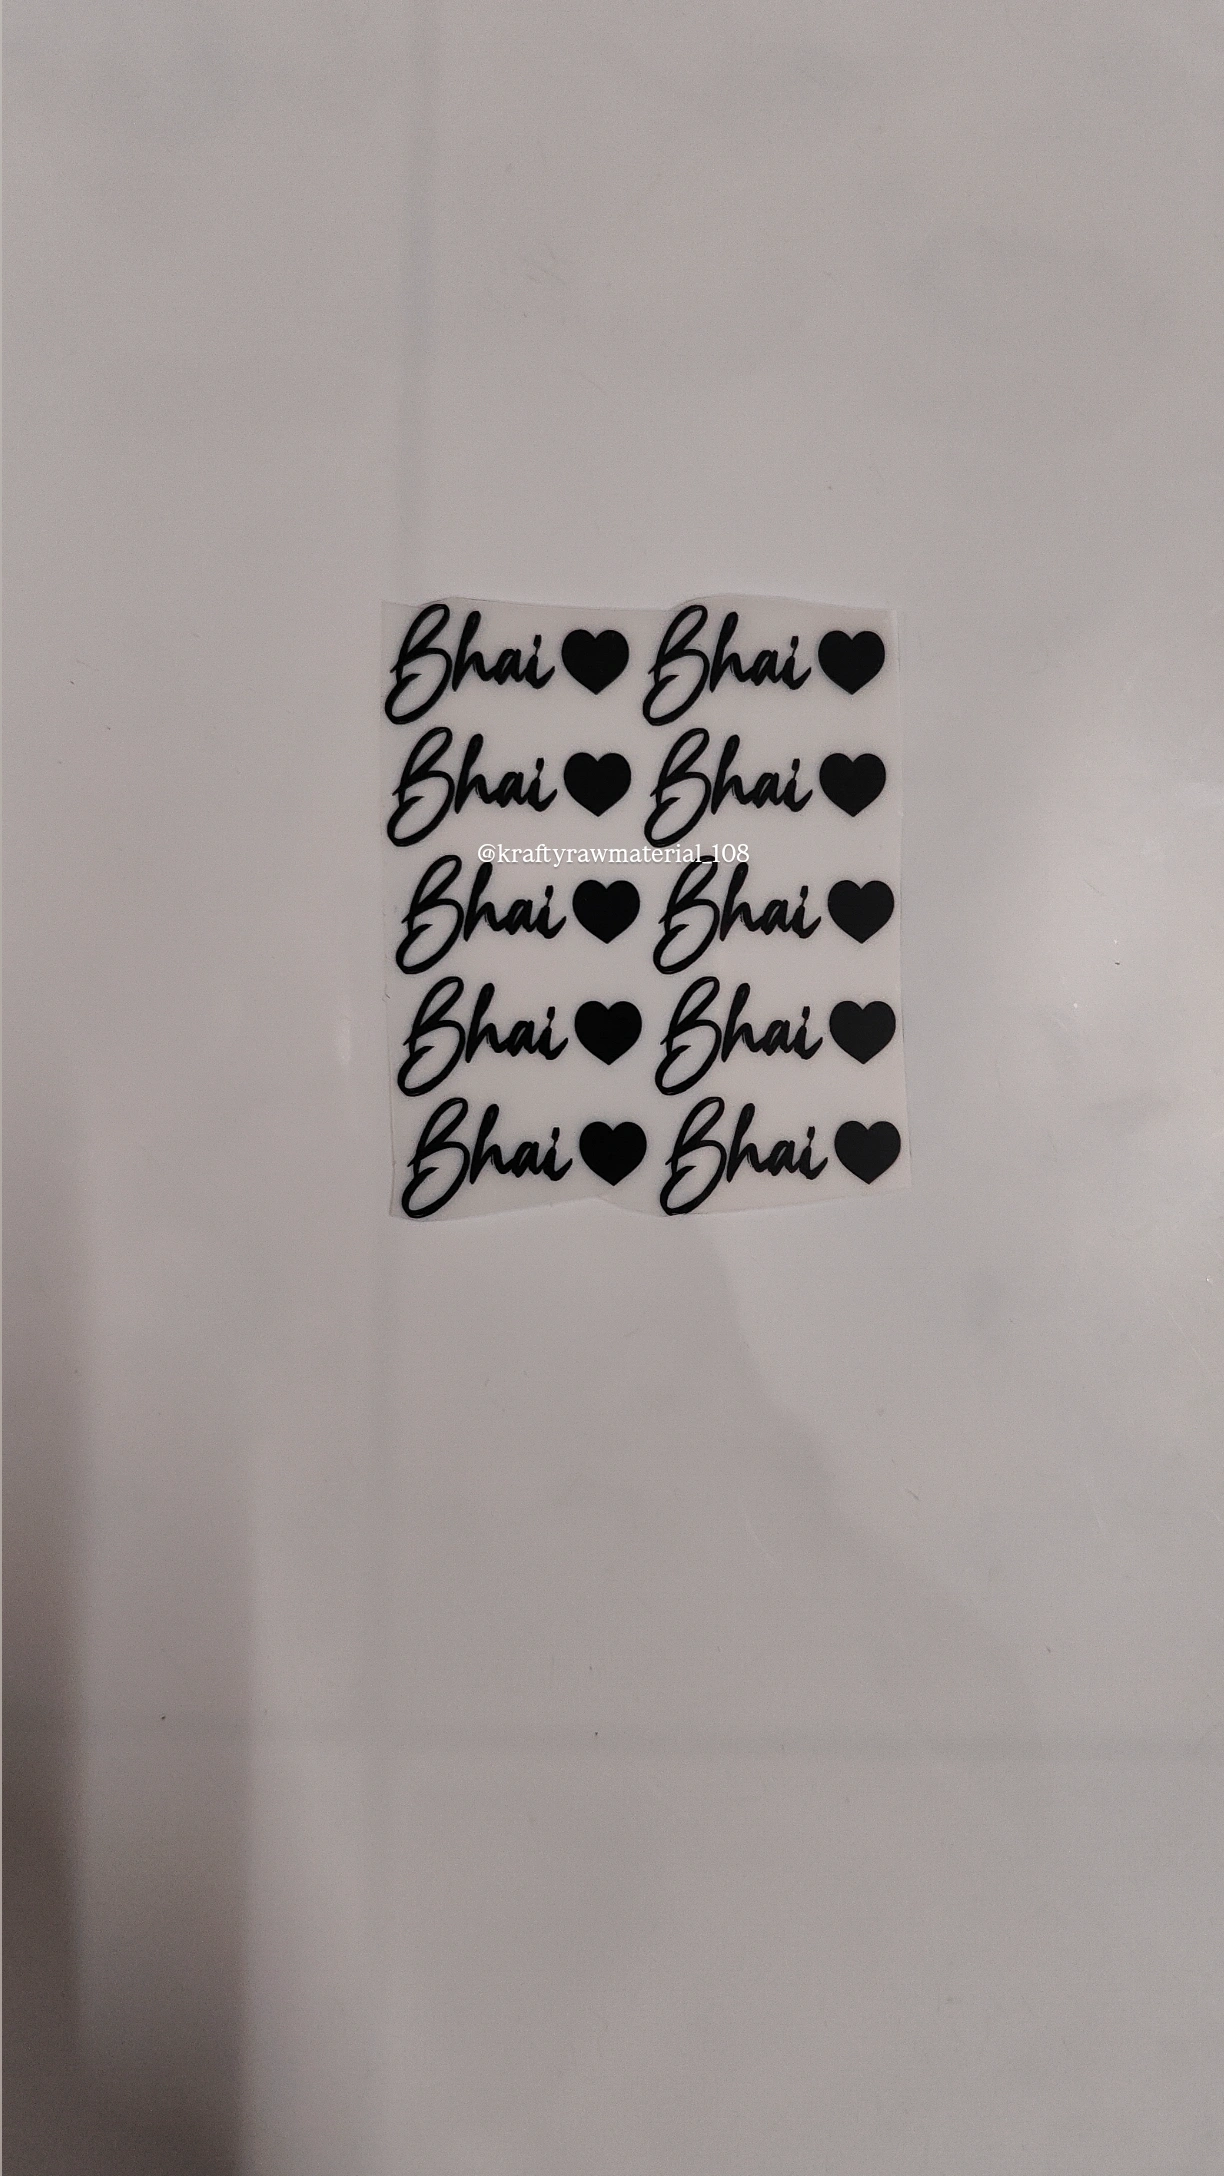 Bhai🖤 Bhai🖤
Bhai🖤 Bhai🖤
@kraftyrawmaterial_108
Bhai🖤 Bhai🖤
Bhai🖤 Bhai🖤
Bhai🖤 Bhai🖤